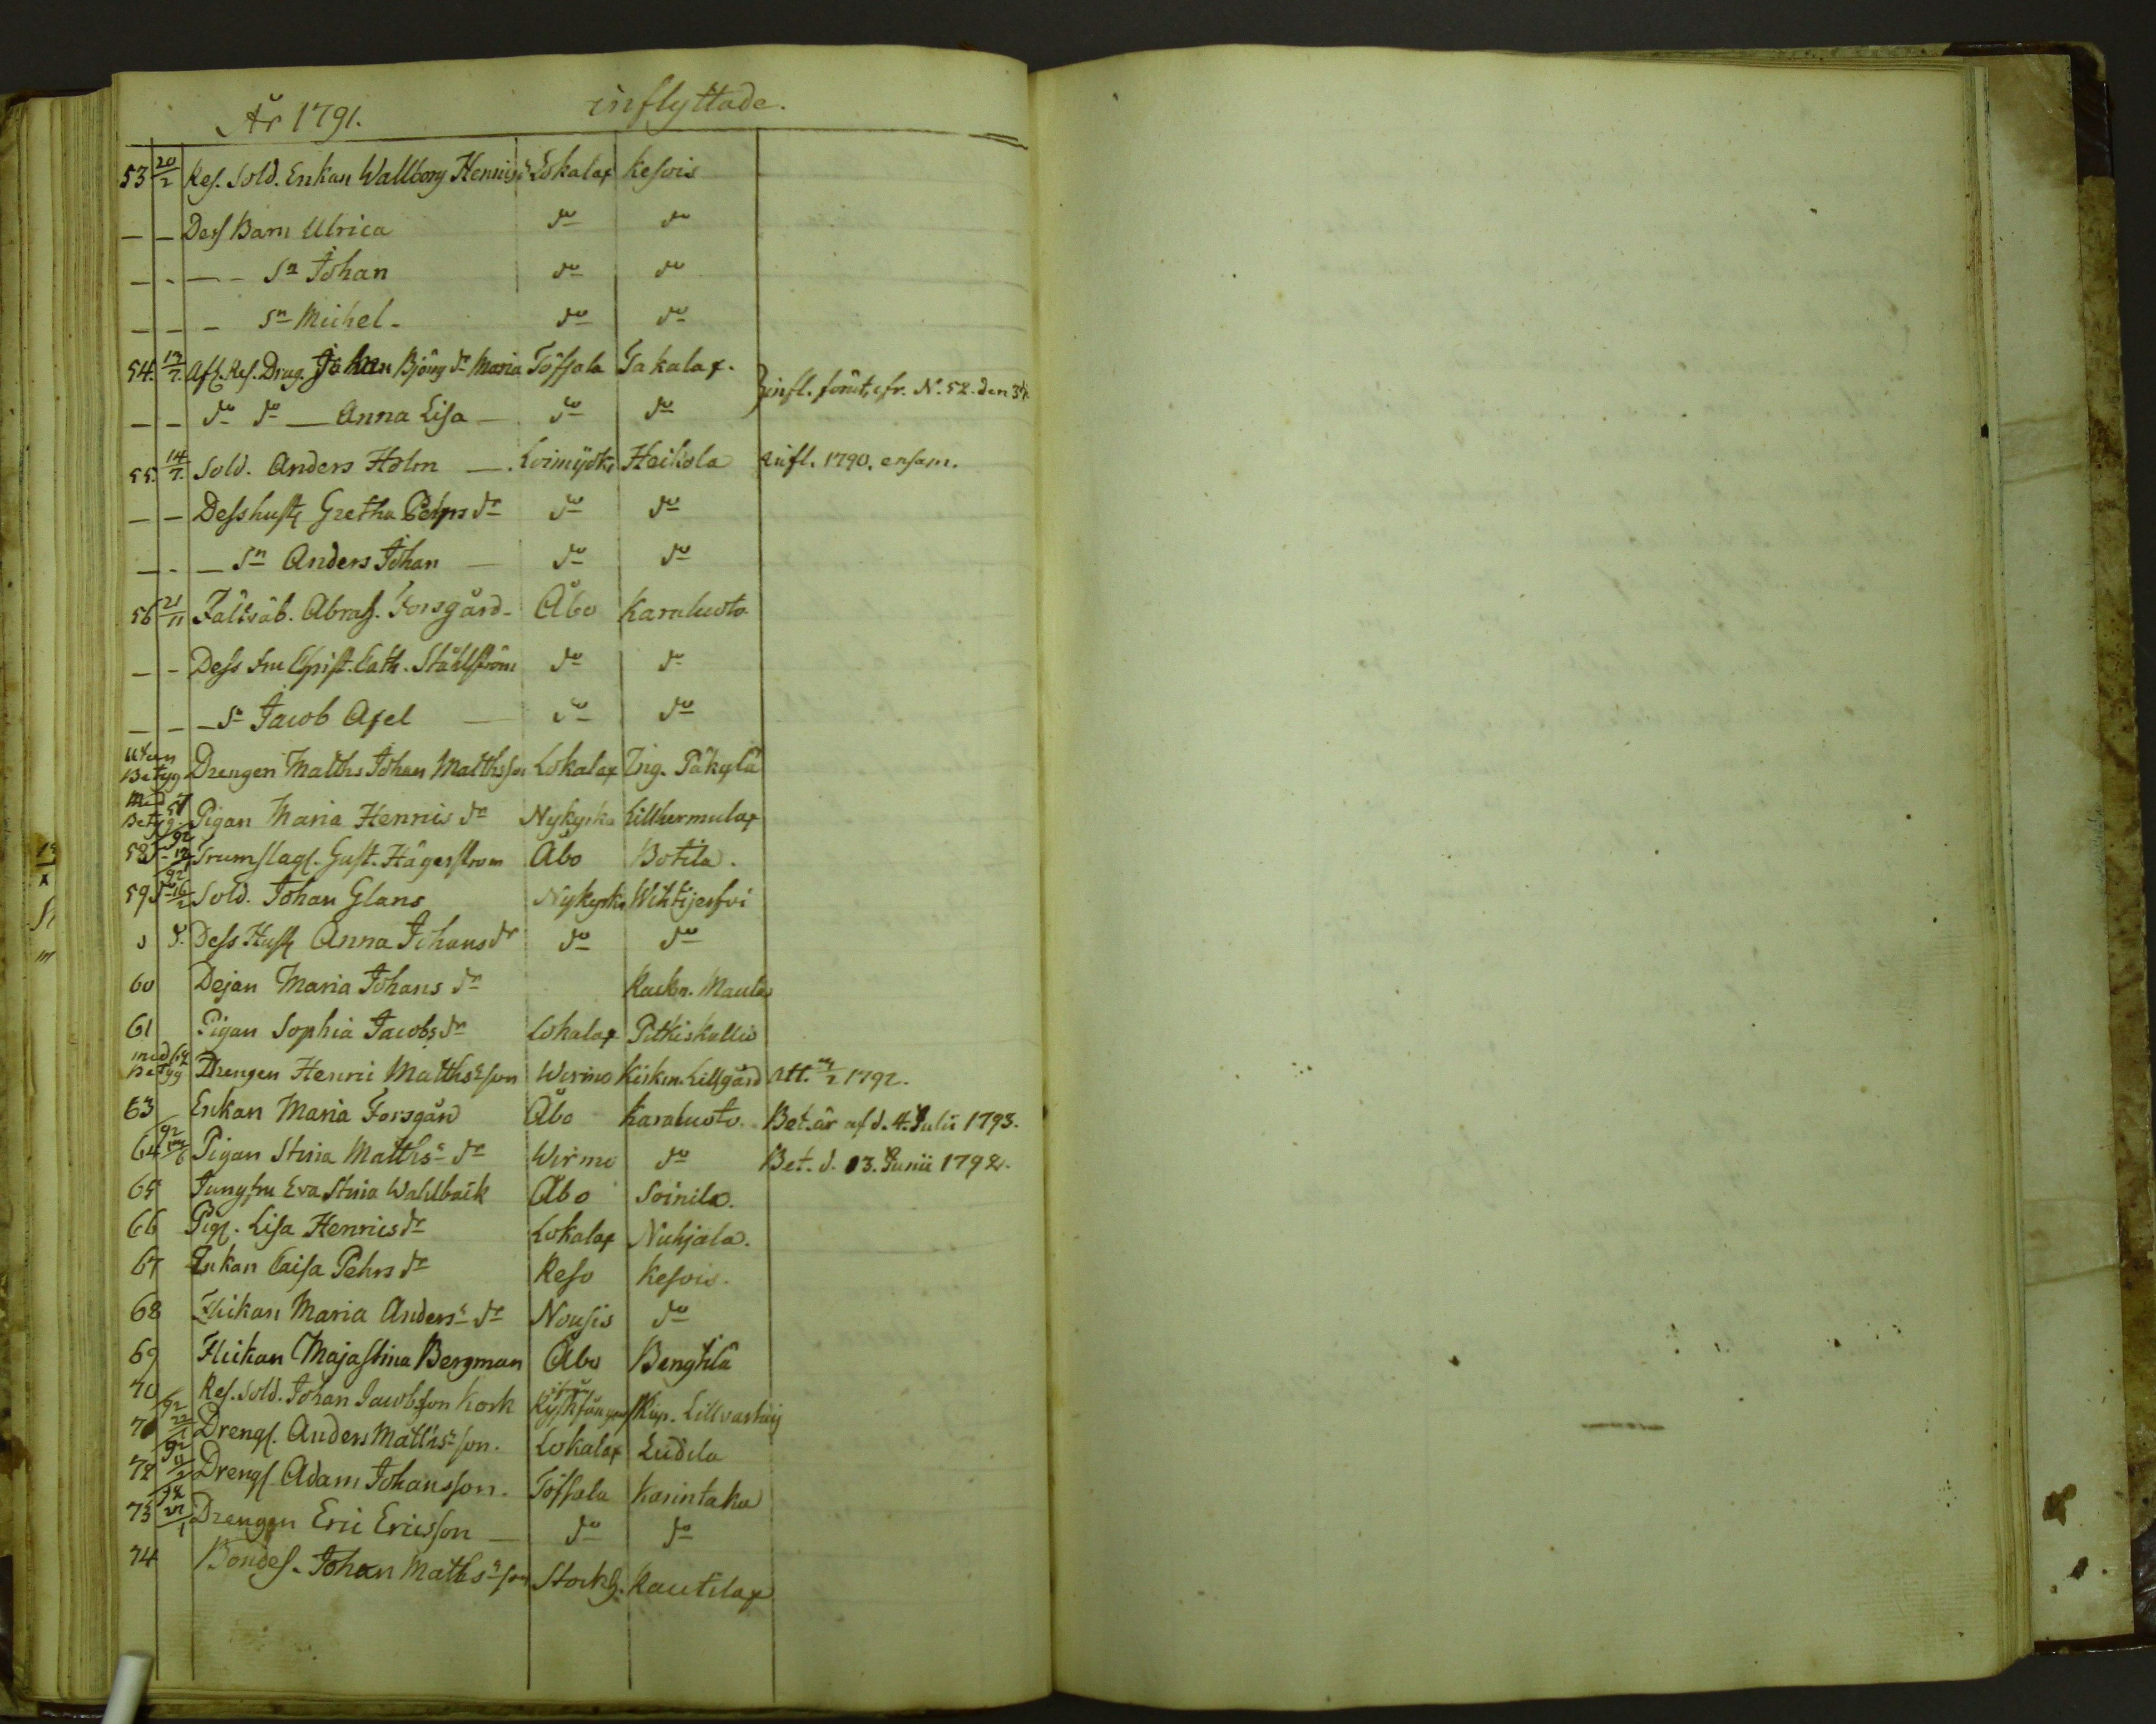 År 1791. inflyttade.
53 20/2 Res. Sold. Enkan Wallborg Henrics dr Lokalax Kesois
— — Dess Barn Ulrica do do
— — — Sn Johan do do
— — — Sn Michel do do
54. 13/7. Afs. Res. Drag. Johan Björng dr Maria Töfsala Takalax.
— — do do — Anna Lisa — do do } infl. förut, cfr. N. 52. den 3/7.
55. 14/7. Sold. Anders Holm — Loimijoki Heikola infl. 1790. ensam.
— — Dess hustr Gretha Pehrs dr do do
— — — Sn Anders Johan — do do
56 21/11 Fältväb. Abrah. Forsgård — Åbo Karaluoto
— — Dess Fru Christ. Cath. Ståhlström do do
— — — Sn Jacob Axel — do do
utan Betyg Drengen Matths Johan Matthsson Lokalax Ing. Päkylä
Med Betyg 57 Pigan Maria Henrics dr Nykyrka Lillhermulax
58 92 Trumslag. Gust. Hägerstrom Åbo Botila.
59 92 16/2 Sold. Johan Glans Nykyrka Wihtijerfvi
Dess Hustr Anna Johans dr do do
60 Dejan Maria Johans dr Maula
61 Pigan Sophia Jacobs dr Lokalax Pitkiskallio
med Betyg 62 Drengen Henric Matthsson Wirmo Kirkm. Lillgård 1792.
63 Enkan Maria Forsgård Åbo Karaluoto. Bet. är af d. 4. Julii 1793.
64 92 Pigan Stina Matths dr Wirmo do Bet. d. 13. Junii 1792.
65 Jungfru Eva Stina Wahlbäck Åbo Soinila.
66 Pig. Lisa Henrics dr Lokalax Nuhjala.
67 Enkan Caisa Pehrs dr Reso Kesois.
68 Flickan Maria Anders dr Nousis do
69 Flickan Majastina Bergman Åbo Bengtila
70 Res. Sold. Johan Jacobsson Kork Lillvarhaij
71 92 22/1 Dreng. Anders Matthsson. Lokalax Ludila
72 92 Dreng. Adam Johansson. Töfsala Karintaka
73 92 27/1 Drengen Eric Ericsson — do do
74 Bondes. Johan Mathsson Stockh. Rautilax